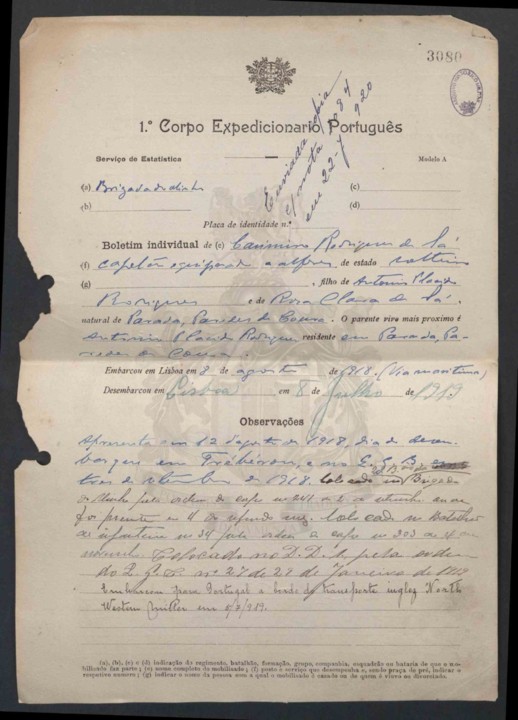 3080
1.º Corpo Expedicionario Português
Enviada copia
nota 1084
em 22-7-920
Serviço de Estatistica
Modelo A
(a) Brigada do Minho
(c)
(b)
(d)
Placa de identidade n.º
Boletim individual de (e) Casimiro Rodrigues de Sá
(f) capelão equiparado a alferes, de estado solteiro
(g) , filho de Antonio Placido
Rodrigues e de Rosa Clara de Sá,
natural de Parada, Paredes de Coura. O parente vivo mais proximo é
Antonio Placido Rodrigues residente em Parada, Pa-
redes de Coura.
Embarcou em Lisboa em 8 de agosto de 1918. (Via maritima)
Desembarcou em Lisboa em 8 de Julho de 1919
Observações
Apresentado em 12 d'agosto de 1918, dia do desem-
barque em , e no C. E. B.
de setembro de 1918. Colocado na Brigada
do Minho pela ordem do corpo nº 241 de 2 de
foi presente em 4 do . Colocado no Batalhão
de infanteria nº 24 pela ordem do corpo nº 303 de
novembro. Colocado no D. D. 1, pela ordem
do Q. G. C. nº 27 de 28 de Janeiro de 1919
Embarcou para Portugal a bordo do transporte inglez North
Western Miller em 5/7/919.
(a), (b), (c) e (d) indicação do regimento, batalhão, formação, grupo, companhia, esquadrão ou bataria de que o mo-
bilizado faz parte; (e) nome completo do mobilizado; (f) posto e serviço que desempenha e, sendo praça de pré, indicar o
respectivo numero; (g) indicar o nome da pessoa com a qual o mobilizado é casado ou de quem é viuvo ou divorciado.